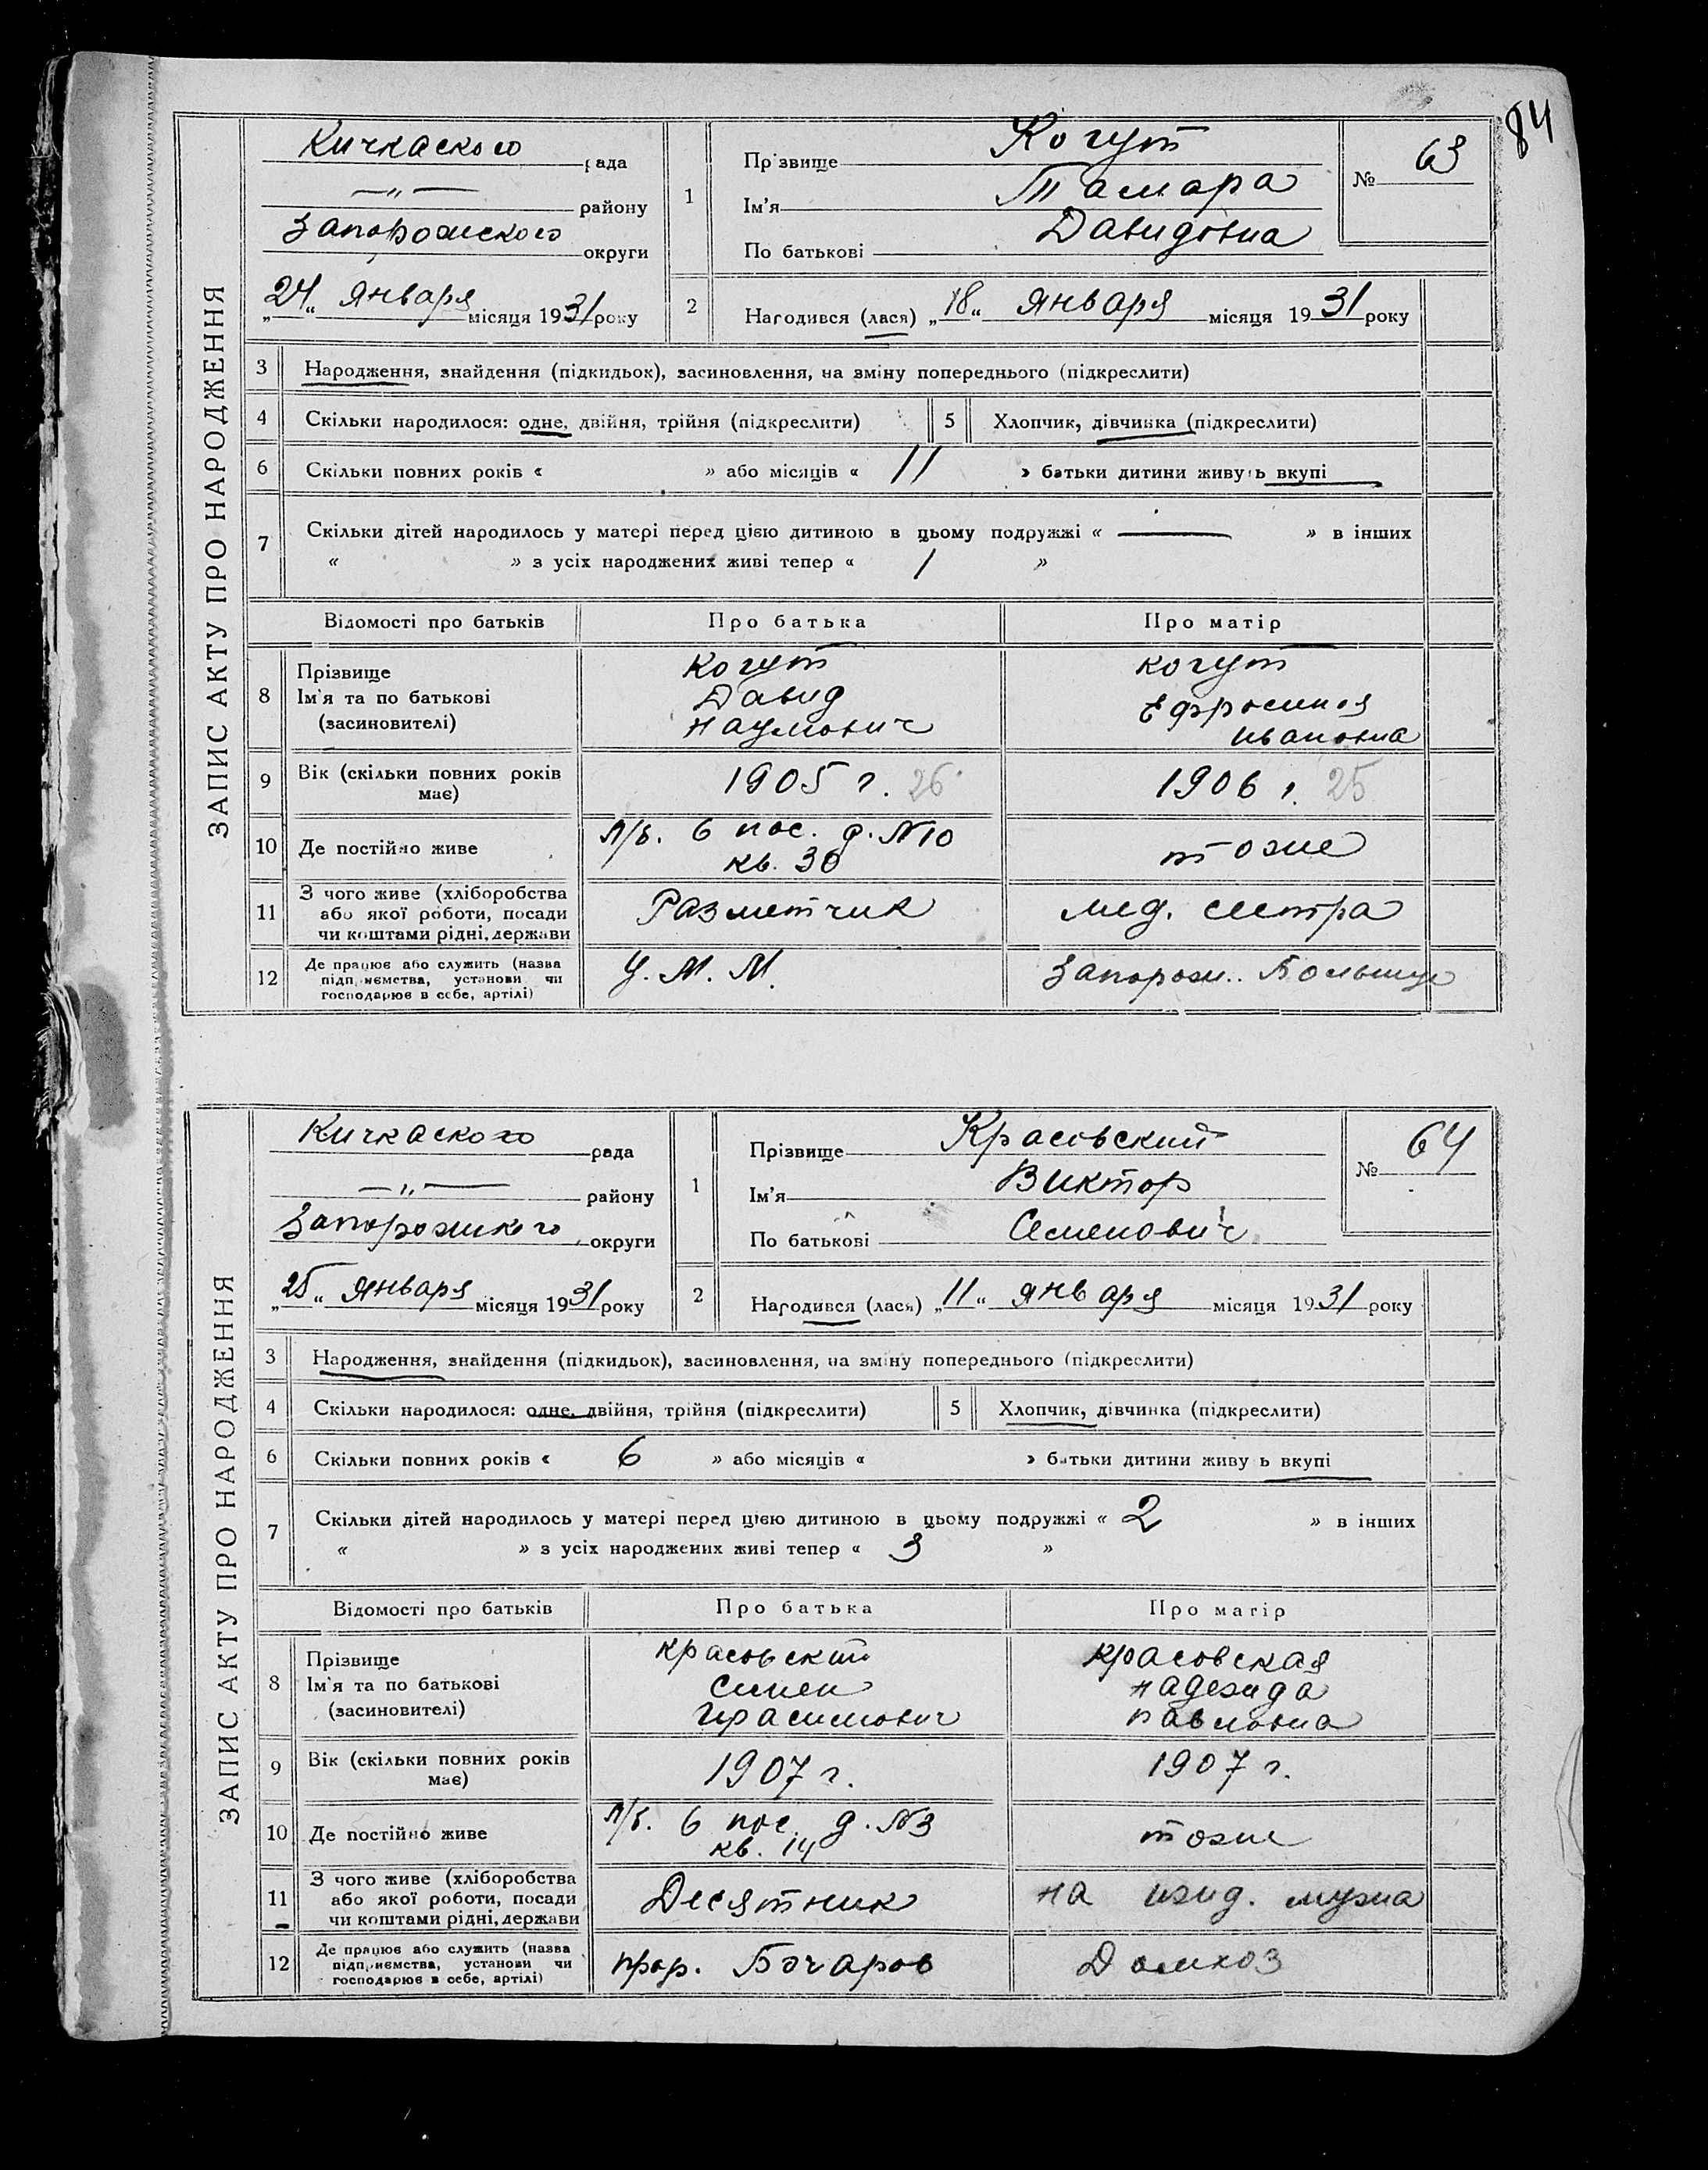 84
ЗАПИС АКТУ ПРО НАРОДЖЕННЯ
Кичкаского рада
—„— району
Запорожского округи
„24“ Января місяця 1931 року
1
Прізвище Когут
Ім'я Тамара
По батькові Давидовна
№ 63
2 Народився (лася) „18“ Января місяця 1931 року
3 Народження, знайдення (підкидьок), засиновлення, на зміну попереднього (підкреслити)
4 Скільки народилося: одне, двійня, трійня (підкреслити) 5 Хлопчик, дівчинка (підкреслити)
6 Скільки повних років « » або місяців « 11 » батьки дитини живуть вкупі
7 Скільки дітей народилось у матері перед цією дитиною в цьому подружжі « — » в інших
« » з усіх народжених живі тепер « 1 »
Відомості про батьків Про батька Про матір
8 Прізвище Когут Когут
Ім'я та по батькові Давид Ефросиния
(засиновителі) Наумович Ивановна
9 Вік (скільки повних років має) 1905 г. 26 1906 г. 25
10 Де постійно живе п/б. 6 пос. д. №10 тоже
кв. 30
11 З чого живе (хліборобства Разметчик мед. сестра
або якої роботи, посади
чи коштами рідні, держави
12 Де працює або служить (назва У. М. М. Запорож.
підприємства, установи чи
господарює в себе, артілі)
ЗАПИС АКТУ ПРО НАРОДЖЕННЯ
Кичкаского рада
—„— району
Запорожского округи
„25“ Января місяця 1931 року
1
Прізвище Красовский
Ім'я Виктор
По батькові Семенович
№ 64
2 Народився (лася) „11“ января місяця 1931 року
3 Народження, знайдення (підкидьок), засиновлення, на зміну попереднього (підкреслити)
4 Скільки народилося: одне, двійня, трійня (підкреслити) 5 Хлопчик, дівчинка (підкреслити)
6 Скільки повних років « 6 » або місяців « » батьки дитини живу ь вкупі
7 Скільки дітей народилось у матері перед цією дитиною в цьому подружжі « 2 » в інших
« » з усіх народжених живі тепер « 3 »
Відомості про батьків Про батька Про матір
8 Прізвище Красовский Красовская
Ім'я та по батькові Семен Надежда
(засиновителі) Герасимович Павловна
9 Вік (скільки повних років має) 1907 г. 1907 г.
10 Де постійно живе п/б. 6 пос. д. №3 тоже
кв. 14
11 З чого живе (хліборобства Десятник на ижд. мужа
або якої роботи, посади
чи коштами рідні, держави
12 Де працює або служить (назва прор. Бочаров Домхоз
підприємства, установи чи
господарює в себе, артілі)